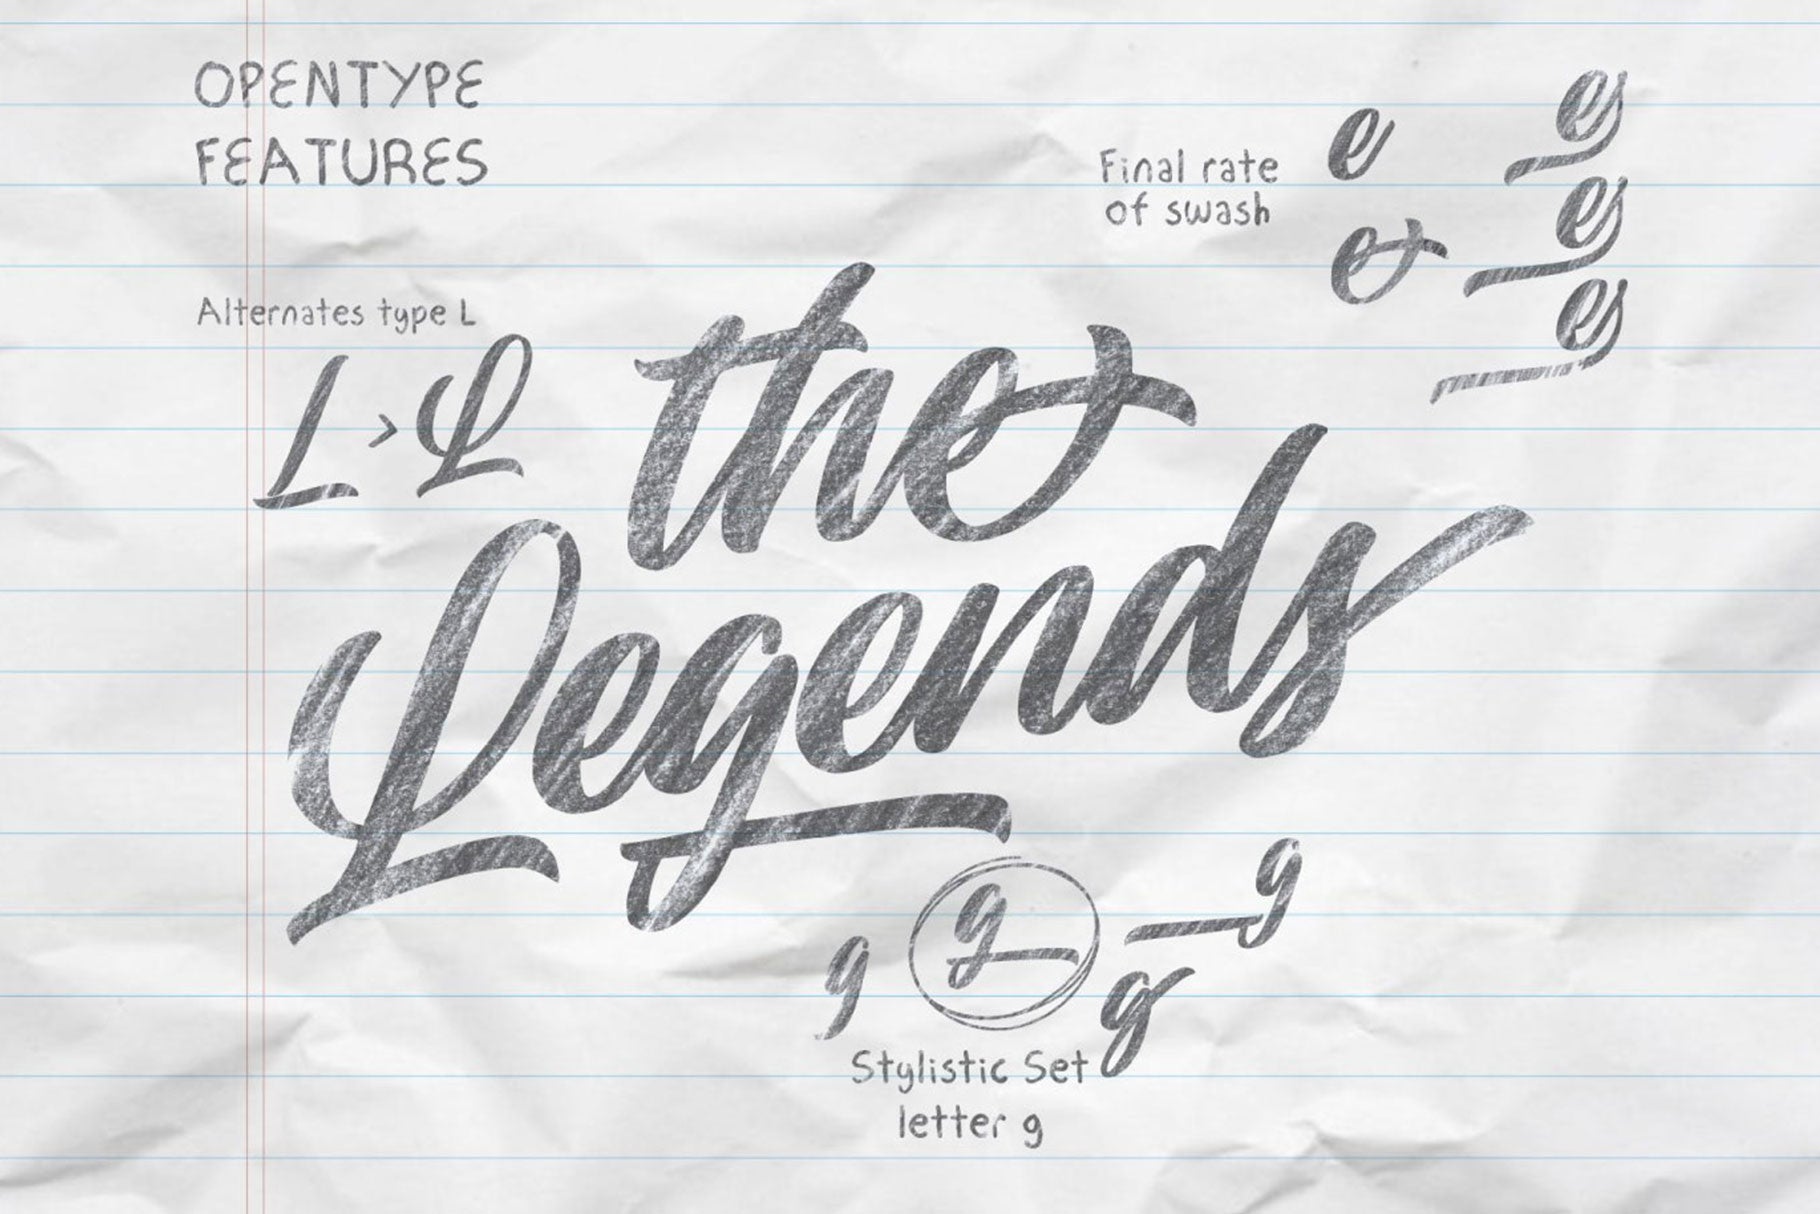 OPENTYPE
FEATURES
Final rate
of swash
e
e
es
es
es
Alternates type L
L > L
the
Legends
g
g
g
g
Stylistic Set
letter g